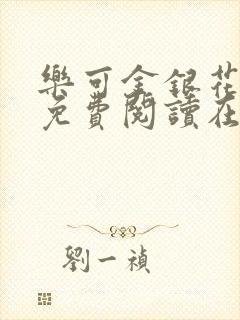 樂可金銀花
免費閱讀在
劉一禎